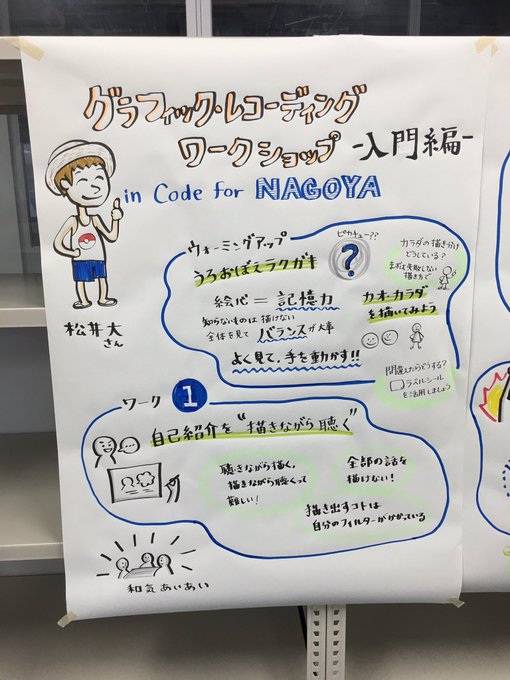 グラフィック・レコーディング
ワークショップ -入門編-
in Code for NAGOYA
松井大
さん
ウォーミングアップ
うろおぼえラクガキ
ピカチュー??
?
絵心=記憶力
知らないものは描けない
全体を見てバランスが大事
よく見て、手を動かす!!
カラダの描き分け
どうしている?
まずは失敗しない
描き方で
カオ・カラダ
を描いてみよう
間違えたらどうする?
ラベルシール
を活用しましょう
ワーク 1
自己紹介を“描きながら聴く”
聴きながら描く。
描きながら聴くって
難しい!
全部の話を
描けない!
描き出すコトは
自分のフィルターがかかっている
和気あいあい